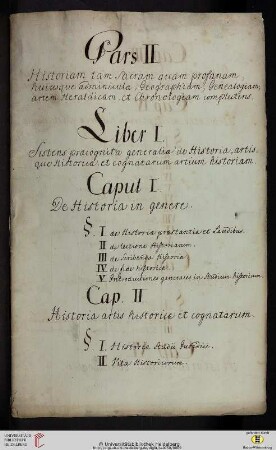 Pars II
Historiam tam Sacram quam profanam,
huiusque adminicula, Geographiam, Genealogiam,
artem Heraldicam, et Chronologiam complectens.
Liber I.
Sistens præcognita generalia de Historia, artis
que historicæ, et cognatarum artium historiam.
Caput I.
De Historia in genere.
§. I de Historiæ præstantia et
II de lectione historiarum.
III de scribenda historia
IV. de fide historica
V. generales in studium historicum.
Cap. II
Historia artis historicæ et cognatarum.
§. I. Historia
II Vitæ Historicorum.
UNIVERSITÄTS-
BIBLIOTHEK
HEIDELBERG
© Universitätsbibliothek Heidelberg